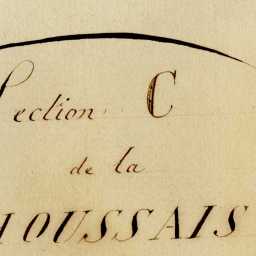 Section C
de la
HOUSSAIS